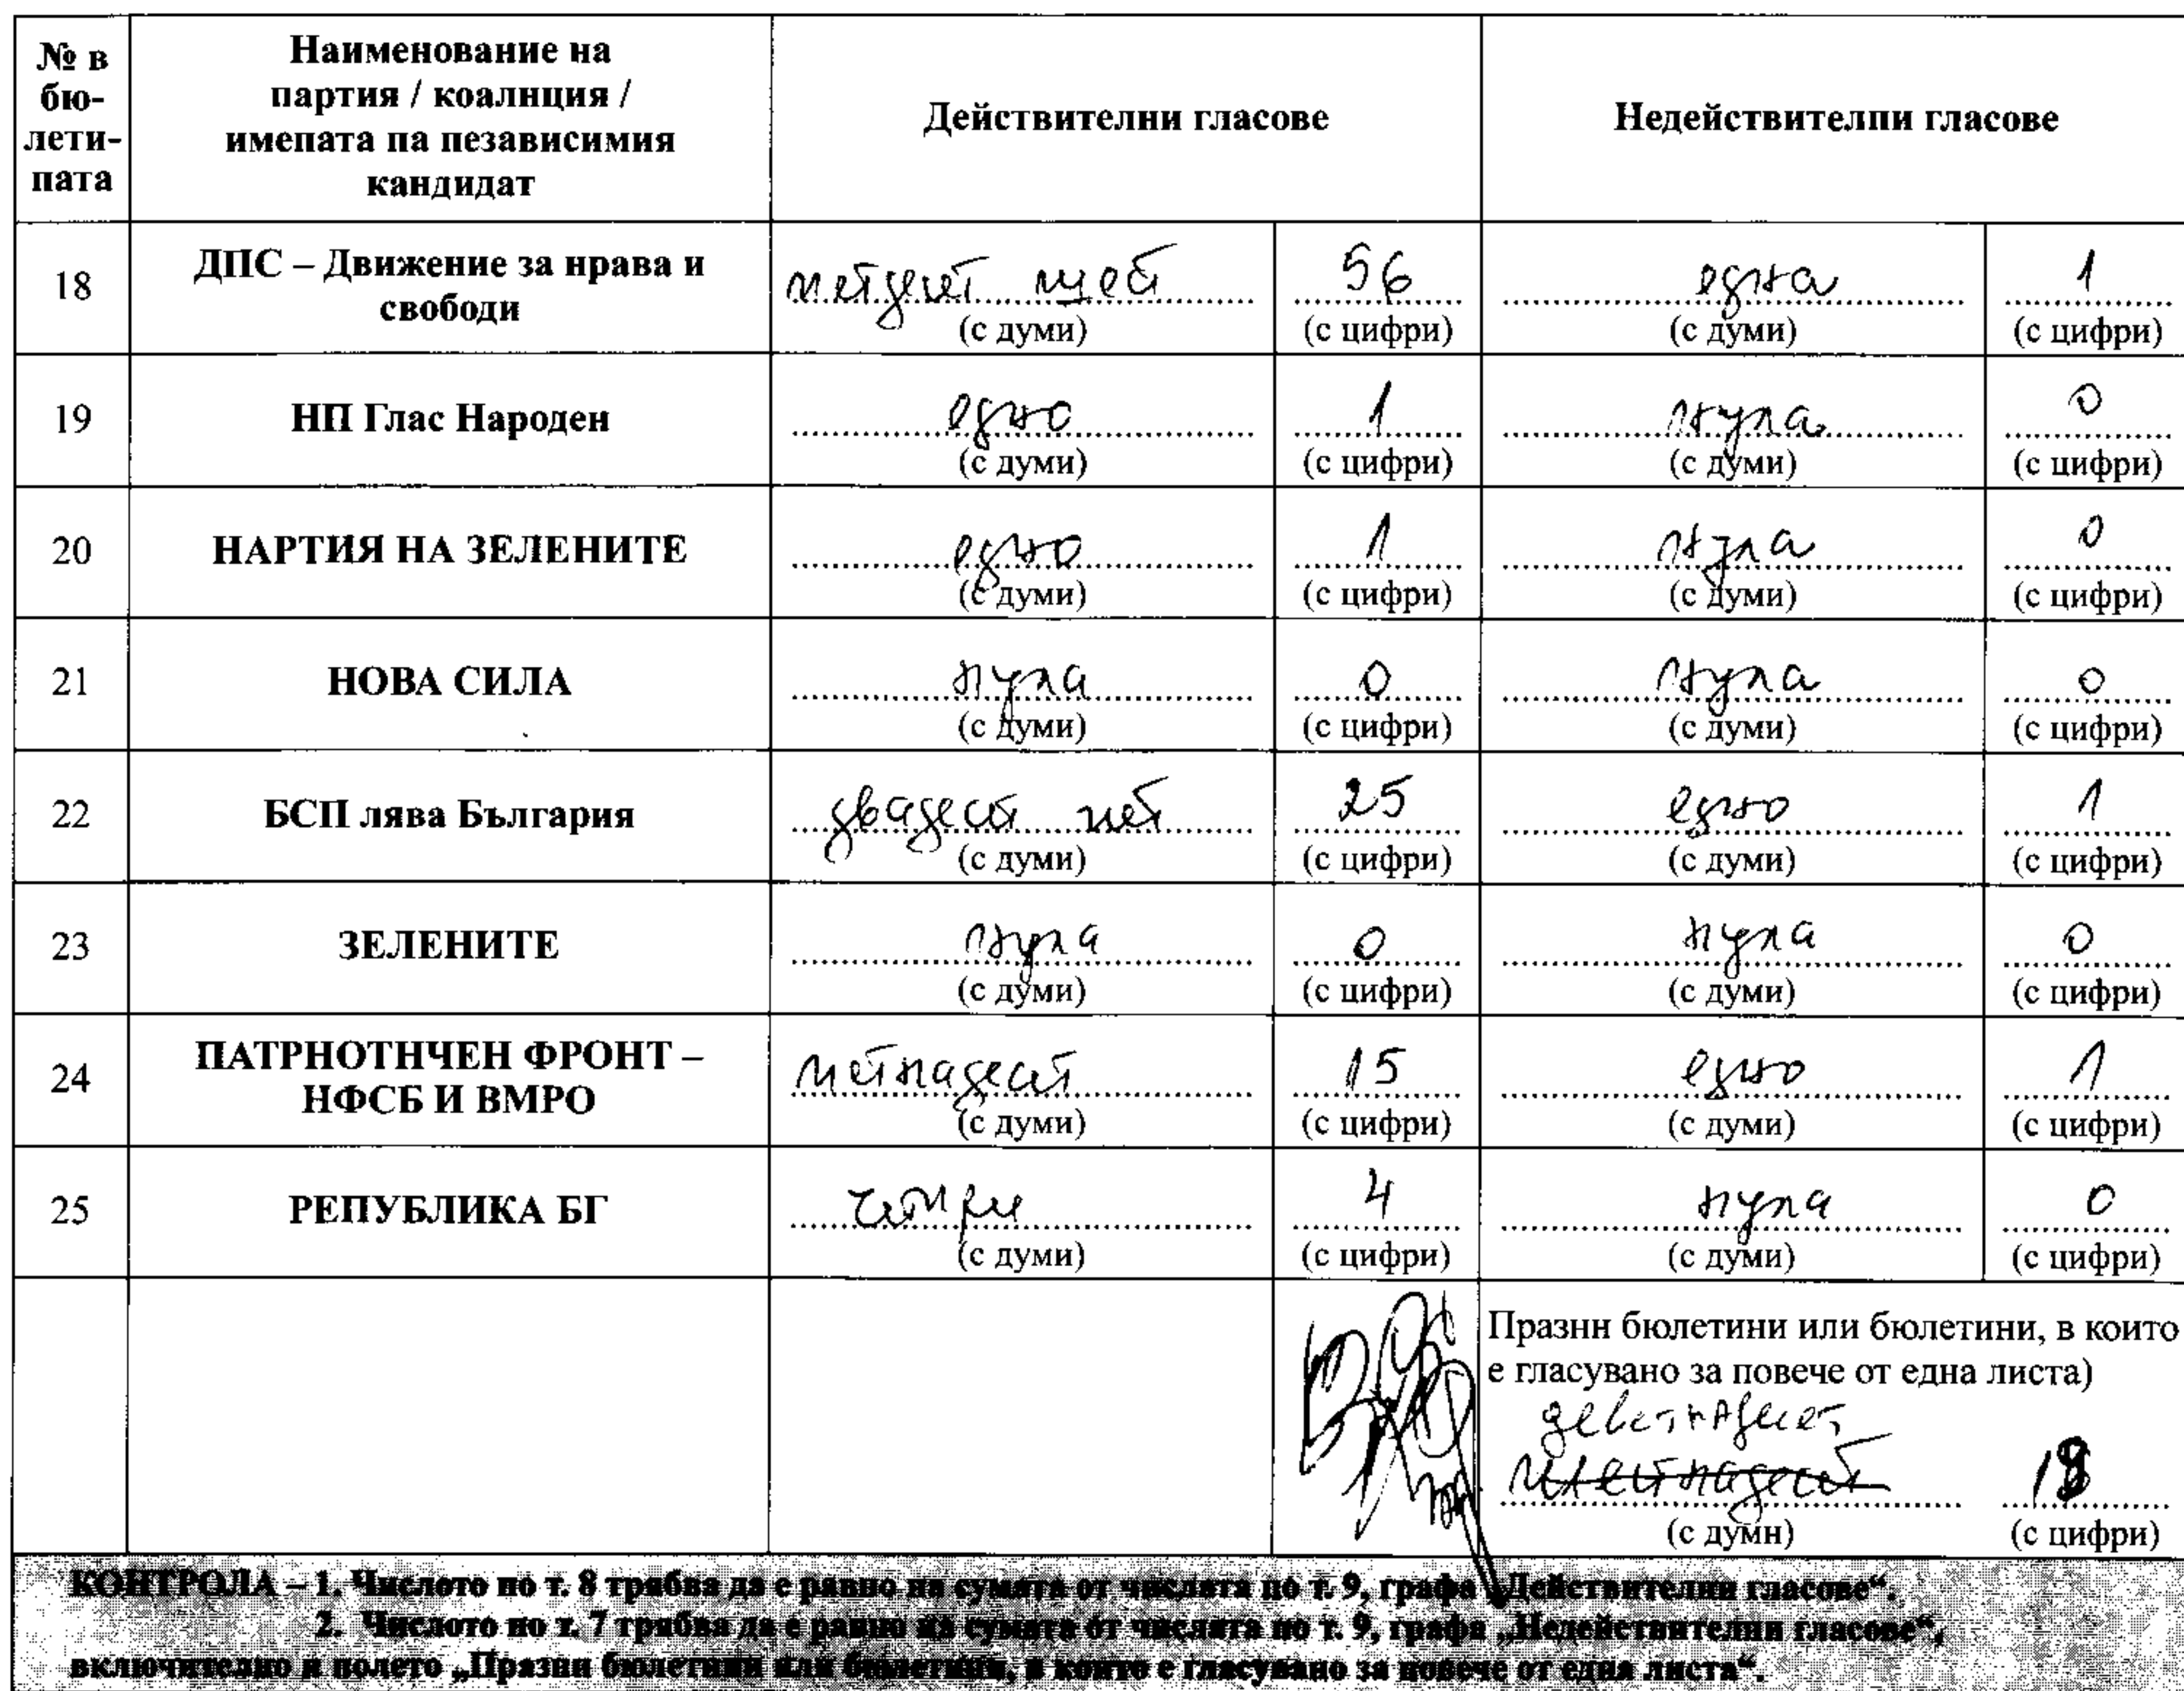 № в бю-лети-пата
Наименование на
партия / коалнция /
имепата па пезависимия
кандидат
Действителни гласове
Недействителпи гласове
18 ДПС – Движение за нрава и свободи петдесет шест 56 една 1
(с думи) (с цифри) (с думи) (с цифри)
19 НП Глас Народен едно 1 нула 0
(с думи) (с цифри) (с думи) (с цифри)
20 НАРТИЯ НА ЗЕЛЕНИТЕ едно 1 нула 0
(с думи) (с цифри) (с думи) (с цифри)
21 НОВА СИЛА нула 0 нула 0
(с думи) (с цифри) (с думи) (с цифри)
22 БСП лява България двадесет пет 25 едно 1
(с думи) (с цифри) (с думи) (с цифри)
23 ЗЕЛЕНИТЕ нула 0 нула 0
(с думи) (с цифри) (с думи) (с цифри)
24 ПАТРНОТНЧЕН ФРОНТ – НФСБ И ВМРО петнадесет 15 едно 1
(с думи) (с цифри) (с думи) (с цифри)
25 РЕПУБЛИКА БГ четири 4 нула 0
(с думи) (с цифри) (с думи) (с цифри)
Празнн бюлетини или бюлетини, в които
е гласувано за повече от една листа)
деветнадесет
(с думн) (с цифри)
КОНТРОЛА – 1. Числото по т. 8 трябва да е равно на сумата от числата по т. 9, графа „Действителни гласове“.
2. Числото по т. 7 трябва да е равно на сумата от числата по т. 9, графа „Недействителни гласове“,
включително и полето „Празни бюлетини или бюлетини, в които е гласувано за повече от една листа“.